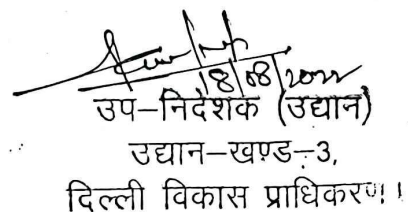 18/08/2022
उप–निदेशक (उद्यान)
उद्यान–खण्ड–3,
दिल्ली विकास प्राधिकरण।।